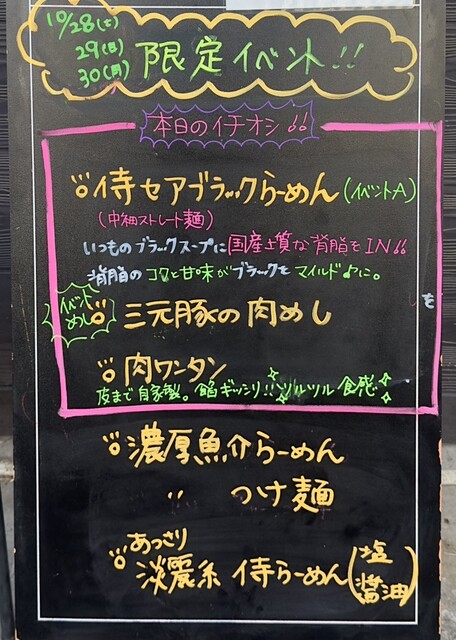 10/28(土)
29(日)
30(月)
限定イベント!!
本日のイチオシ!!
侍セアブラブラックらーめん(イベントA)
(中細ストレート麺)
いつものブラックスープに国産上質な背脂をIN!!
背脂のコクと甘味がブラックをマイルド♪に。
を
イベントめし
三元豚の肉めし
肉ワンタン
皮まで自家製。餡ギッシリ!!ツルツル食感
濃厚魚介らーめん
〃 つけ麺
あっさり
淡麗系 侍らーめん(塩 醤油)